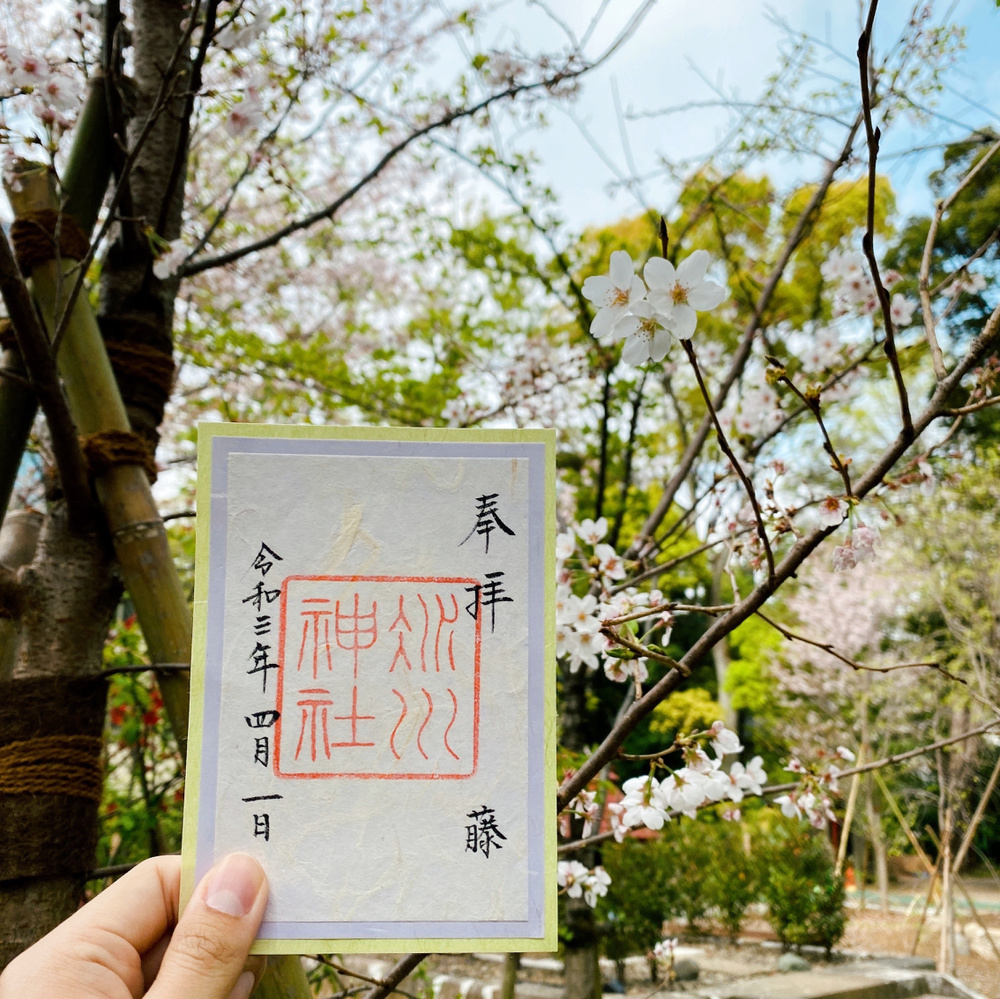 奉拝 藤
氷川
神社
令和三年 四月 一日